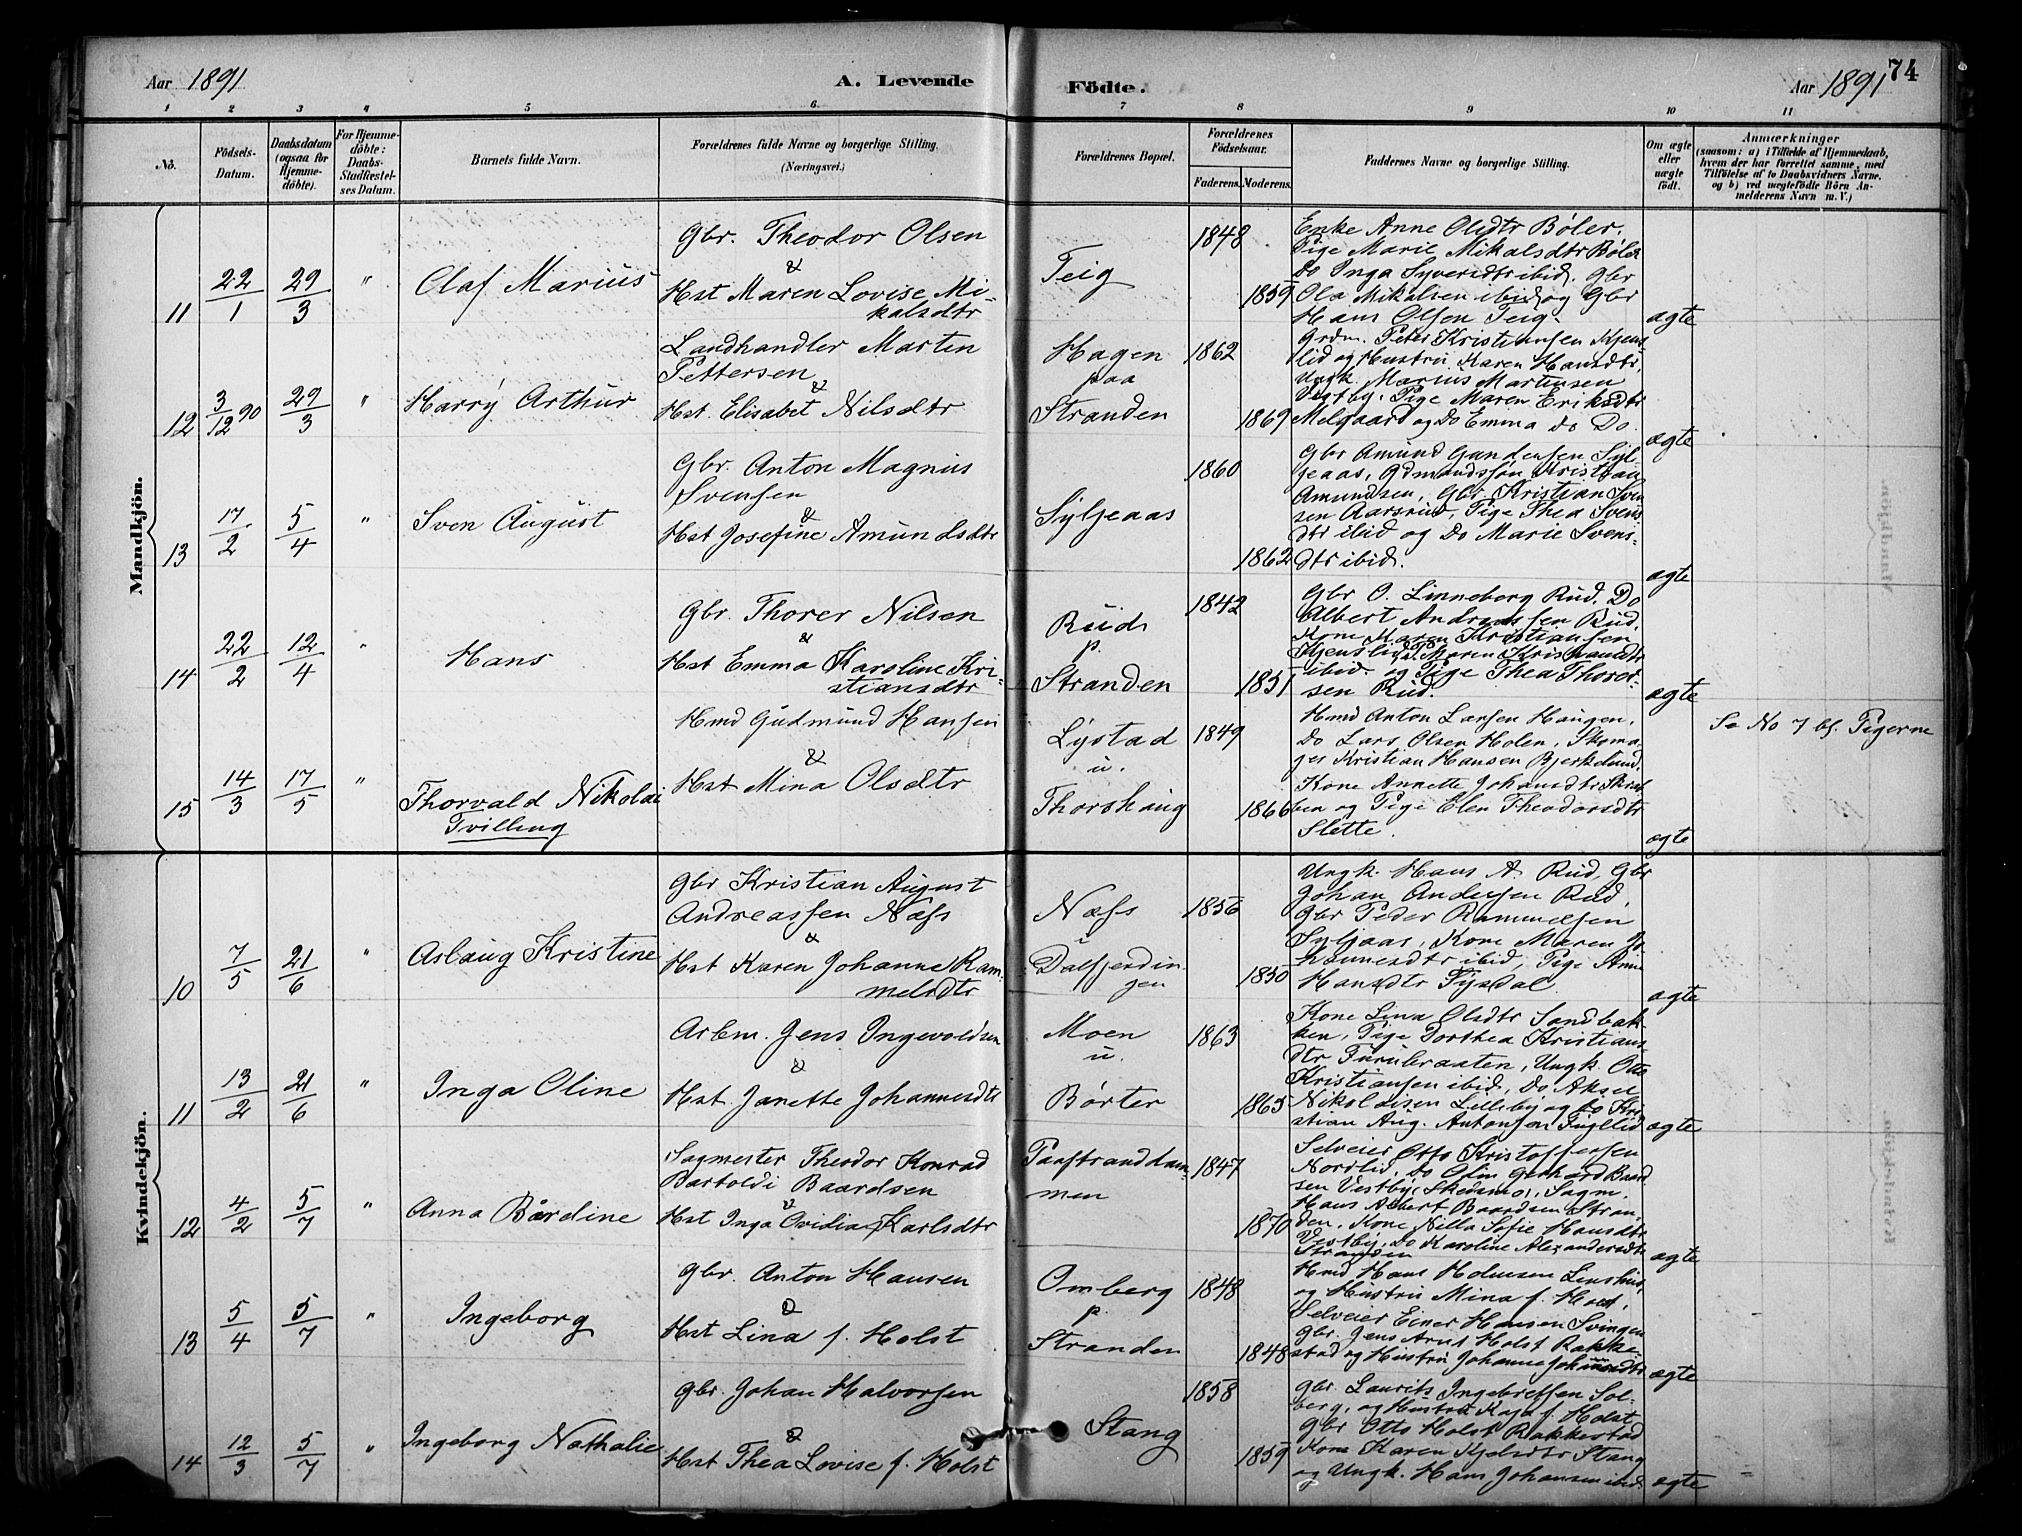 Aar 1891
A. Levende
Födte.
Aar 1891
74
1 2 3 4 5 6. 7 8 9 10 11
No.
Födsels-
Datum.
Daabsdatum
(ogsaa for
Hjemme-
döbte).
For Hjemme-
döbte:
Daabs-
Stadfæstel-
ses Datum.
Barnets fulde Navn.
Forældrenes fulde Navne og borgerlige Stilling.
(Næringsvei.)
Forældrenes Bopæl.
Forældrenes
Födselsaar.
Faderens. Moderens.
Faddernes Navne og borgerlige Stilling.
Om ægte
eller
uægte
födt.
Anmærkninger
(saasom: a) i Tilfælde af Hjemmedaab,
hvem der har forrettet samme, med
Tilföielse af to Daabsvidners Navne,
og b) ved uægtefödte Börn An-
melderens Navn m. V.)
Mandkjön.
11
22/1
29/3
"
Olaf Marius
Gbr. Theodor Olsen
&
Hst Maren Lovise Mi-
kalsdtr
Teig
1848
1859
Enke Anne Olsdtr Bøler.
Pige Marie Mikalsdtr Bøler
Do Inga Syversdtr ibid. Gbr
Ole Mikalsen ibid og Gbr
Hans Olsen Teig.
ægte
12
3/12 90
29/3
"
Harry Arthur
Landhandler Martin
Pettersen
&
Hst. Elisabet Nilsdtr
Hagen
paa
Stranden
1862
1869
Grdm. Peter Kristiansen Kjens-
lid og Hustru Karen Hansdtr,
Ungk. Marius Martinsen
Vestby, Pige Maren Eriksdtr
Melgaard og Do Emma do Do
ægte
13
17/2
5/4
"
Sven August
Gbr. Anton Magnus
Svensen
&
Hst Josefine Amundsdtr
Syljeaas
1860
1862
Gbr Amund Gundersen Syl-
jeaas, Kristian
Amundsen, Gbr. Kristian Sven
sen Aarsrud, Pige Thea Svens
dtr ibid og Do Marie Svens-
dtr ibid.
ægte
14
22/2
12/4
"
Hans
Gbr. Thorer Nilsen
&
Hst Emma Karoline Kri-
stiansdtr
Rud
p.
Stranden
1842
1851
Gbr O. Linneborg Rud. Do
Albert Andreassen Rud.
Kone Maren Kristiansen
Kjenslid, P. Maren Kristiansdtr
ibid. og Pige Thea Thorer-
sen Rud.
ægte
15
14/3
17/5
"
Thorvald Nikolai
Tvilling
Hmd Gudmund Hansen
&
Hst Mina Olsdtr
Lystad
u.
Thorshaug
1849
1866
Hmd Anton Larsen Haugen,
Do Lars Olsen Holen, Skoma-
ger Kristian Hansen Bjerkelund.
Kone Annette Johansdtr
og Pige Elen Theodorsdtr
Slette.
ægte
Se No 7 bl. Pigerne
Kvindekjön.
10
7/5
21/6
"
Aslaug Kristine
Gbr Kristian August
Andreassen Næss
&
Hst Karen Johanne Ram-
melsdtr
Næss
i
Dalfjerdin-
gen
1856
1850
Ungk. Hans A. Rud, Gbr
Johan Andersen Rud,
Gbr Peder Rammelsen
Syljaas, Kone Maren Jo
hannesdtr ibid, Pige Anne
Hansdtr Tysdal
ægte
11
13/2
21/6
"
Inga Oline
Arbm. Jens Ingevoldsen
&
Hst. Janette Johannesdtr
Moen
u.
Børter
1863
1865
Kone Lina Olsdtr Sandbak-
ken, Pige Dorthea Kristians
dtr Furubraaten, Ungk. Otto
Kristiansen ibid, Do Aksel
Nikolaisen Lilleby og Do Kri-
stian Aug. Antonsen
ægte
12
4/2
5/7
"
Anna Bårdine
Sagmester Theodor Konrad
Bartoldi Baardsen
&
Hst Inga Ovidia Karlsdtr
Paastranddam-
men
1847
1870
Selveier Otto Kristoffersen
Nordlid, Do Gerhard Baard
sen Vestby, Skedsmo, Sagm.
Hans Albert Baardsen Stran
den. Kone Nilla Sofie Hansdtr
Vestby, Do Karoline Alexandersdtr
Stranden
ægte
13
5/4
5/7
"
Ingeborg
Gbr. Anton Hansen
&
Hst Lina f. Holst
Omberg
p.
Stranden
1848
1848
Hmd Hans Holmsen
og Hustru Mina f. Holst,
Selveier Einer Hansen Svingen
Gbr. Jens Arnt Holst Rakke-
stad og Hustru Johanne Johannesdtr
ægte
14
12/3
5/7
"
Ingeborg Nathalie
Gbr. Johan Halvorsen
&
Hst Thea Lovise f. Holst
Stang
1858
1859
Gbr. Laurits Ingebretsen Sol-
berg, og Hustru Kaja f. Holst
Gbr Otto Holst Rakkestad
Kone Karen Kjelsdtr Stang
og Ungk. Hans Johansen ibid.
ægte